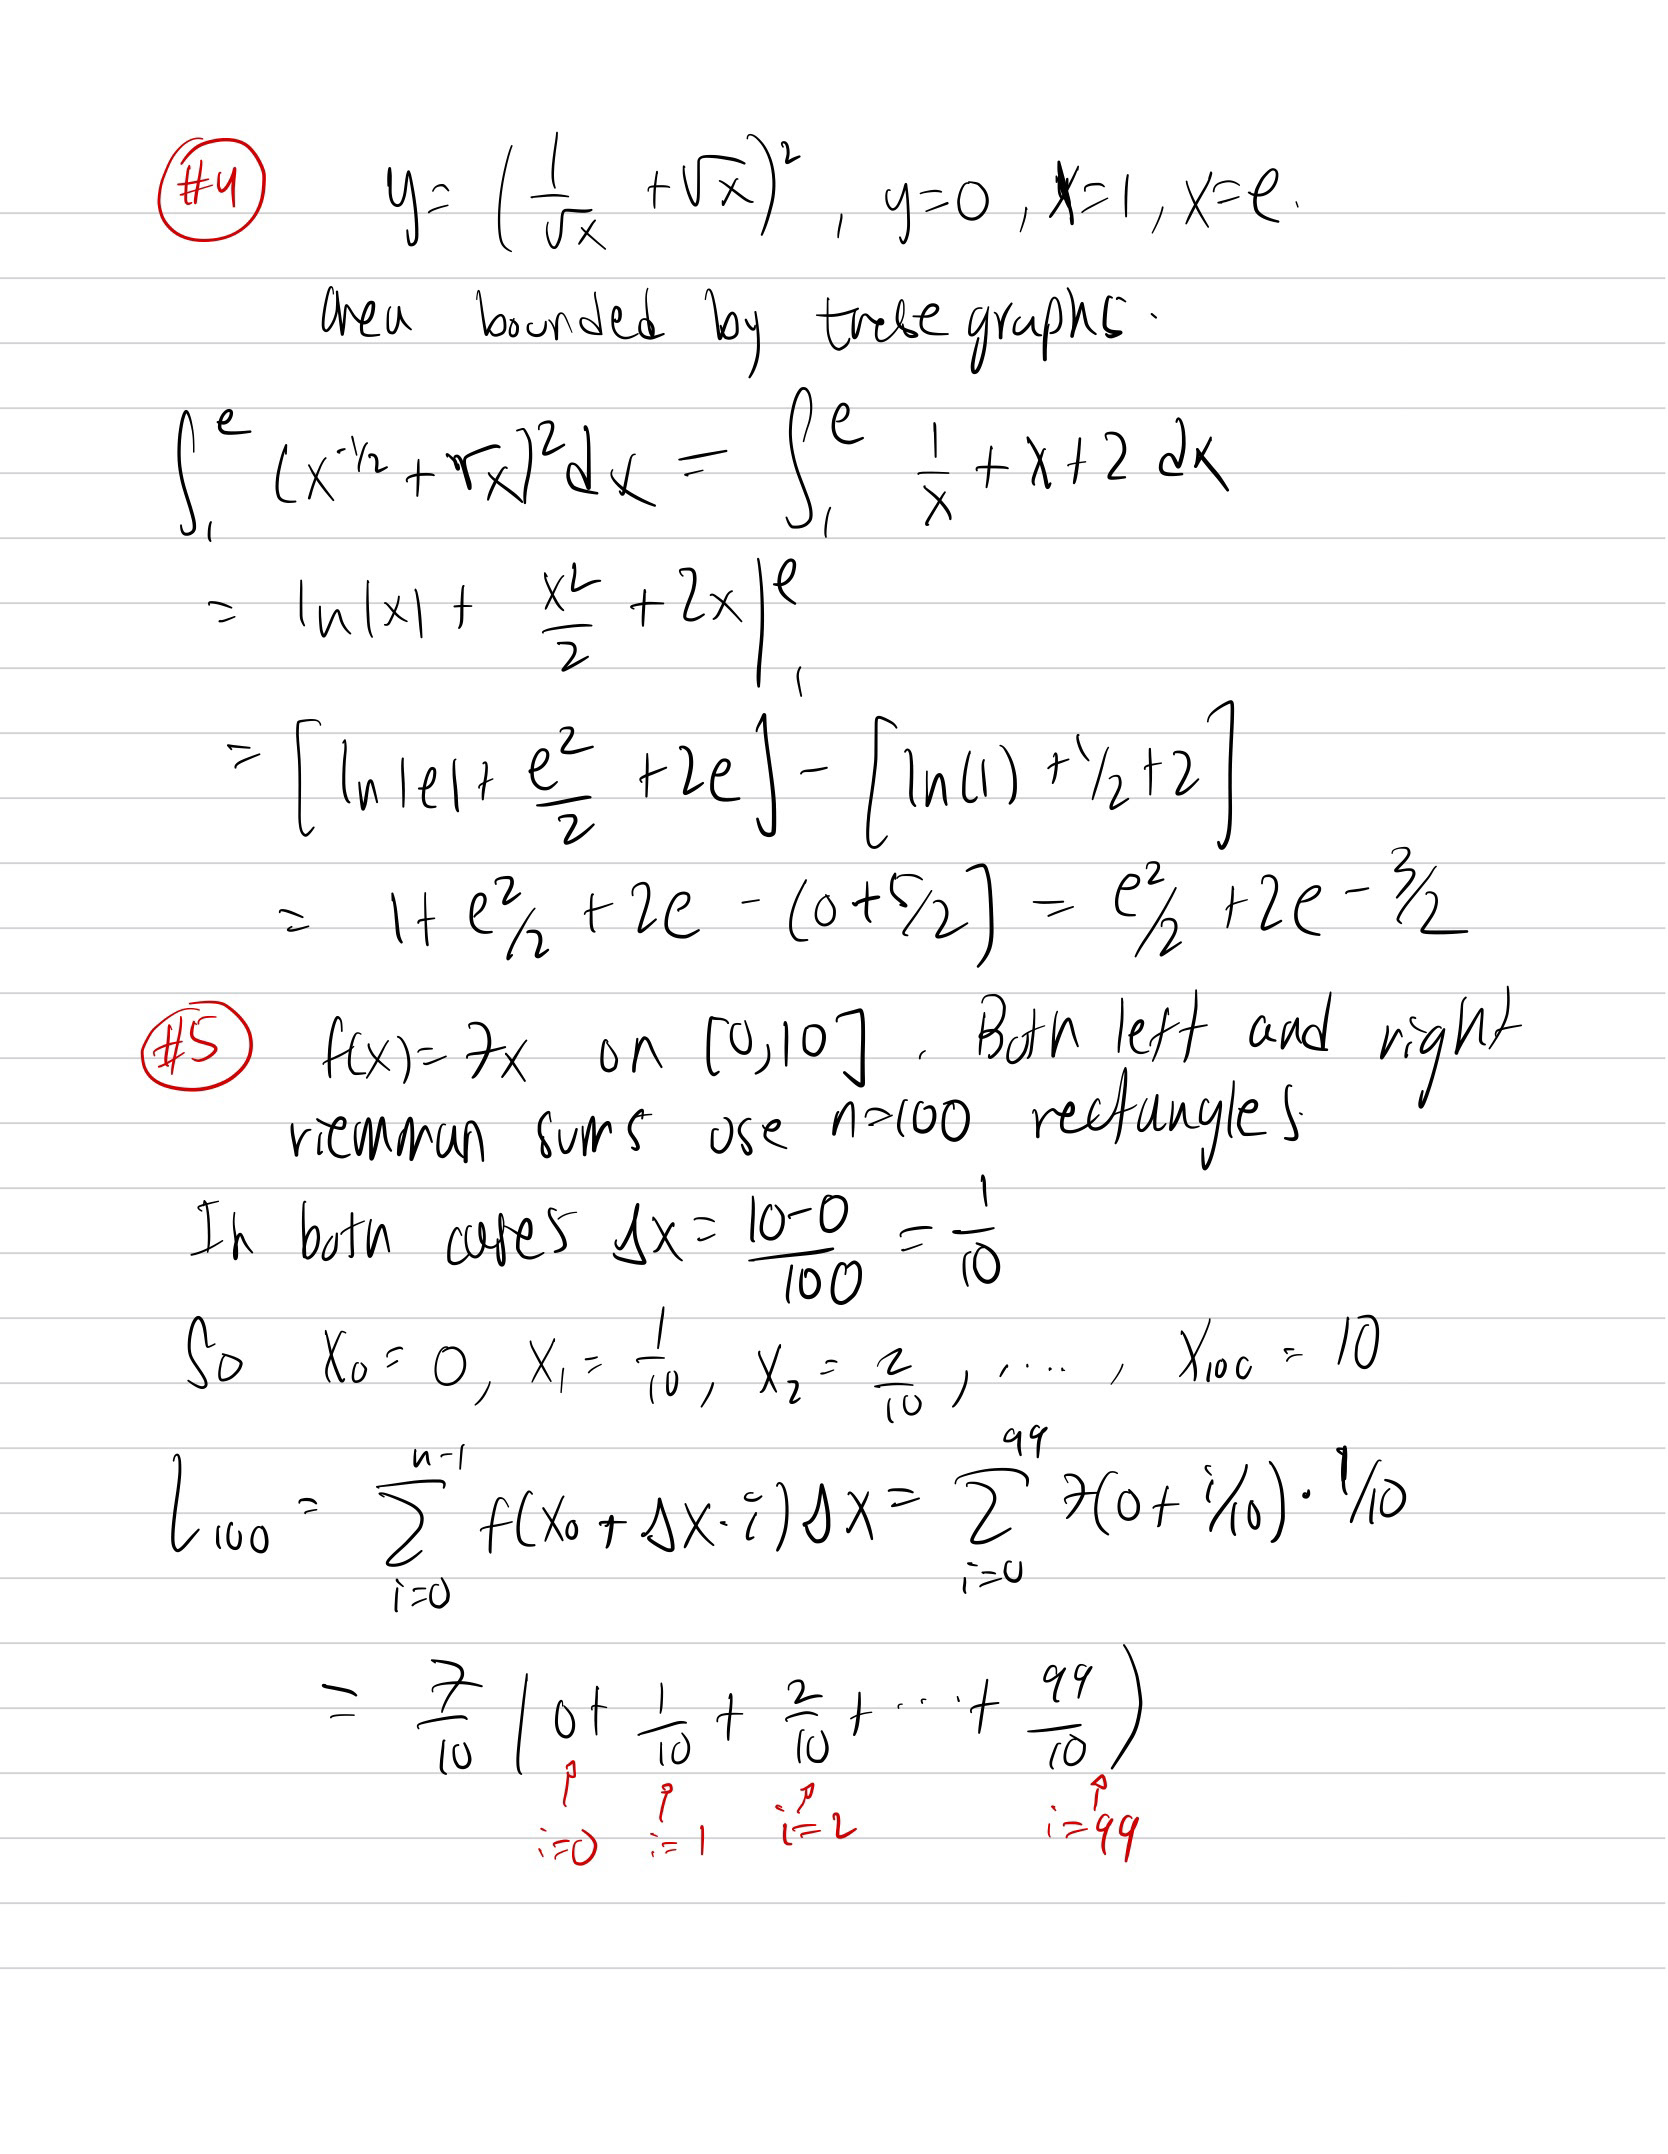 #4 y = (1/√x + √x)², y=0, x=1, x=e.
area bounded by these graphs.
∫₁ᵉ (x^(-1/2) + √x)² dx = ∫₁ᵉ 1/x + x + 2 dx
= ln|x| + x²/2 + 2x |₁ᵉ
= [ln|e| + e²/2 + 2e] - [ln(1) + 1/2 + 2]
= 1 + e²/2 + 2e - (0 + 5/2] = e²/2 + 2e - 3/2
#5 f(x) = 7x on [0,10]. Both left and right
riemman sums use n=100 rectangles.
In both cases Δx = (10-0)/100 = 1/10
So x₀ = 0, x₁ = 1/10, x₂ = 2/10, ...., x₁₀₀ = 10
L₁₀₀ = ∑_{i=0}^{n-1} f(x₀ + Δx·i)Δx = ∑_{i=0}^{99} 7(0 + i/10)·1/10
= 7/10 (0 + 1/10 + 2/10 + ... + 99/10)
i=0 i=1 i=2 i=99